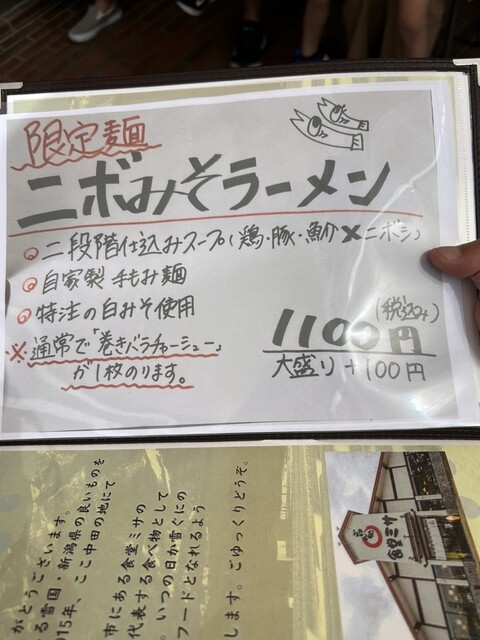 限定麺
ニボみそラーメン
◎二段階仕込みスープ(鶏・豚・魚介×ニボシ)
◎自家製 手もみ麺
◎特注の白みそ使用
※通常で「巻きバラチャーシュー」
が1枚のります。
(税込み)
1100円
大盛り +100円
します。ごゆっくりどうぞ。
フードとなれるよう
。いつの日か雪ぐにの
代表する食べ物として
市にある食堂ミサの
015年、ここ中田の地にて
る雪国・新潟県の良いものを
がとうございます。
食堂ミサ